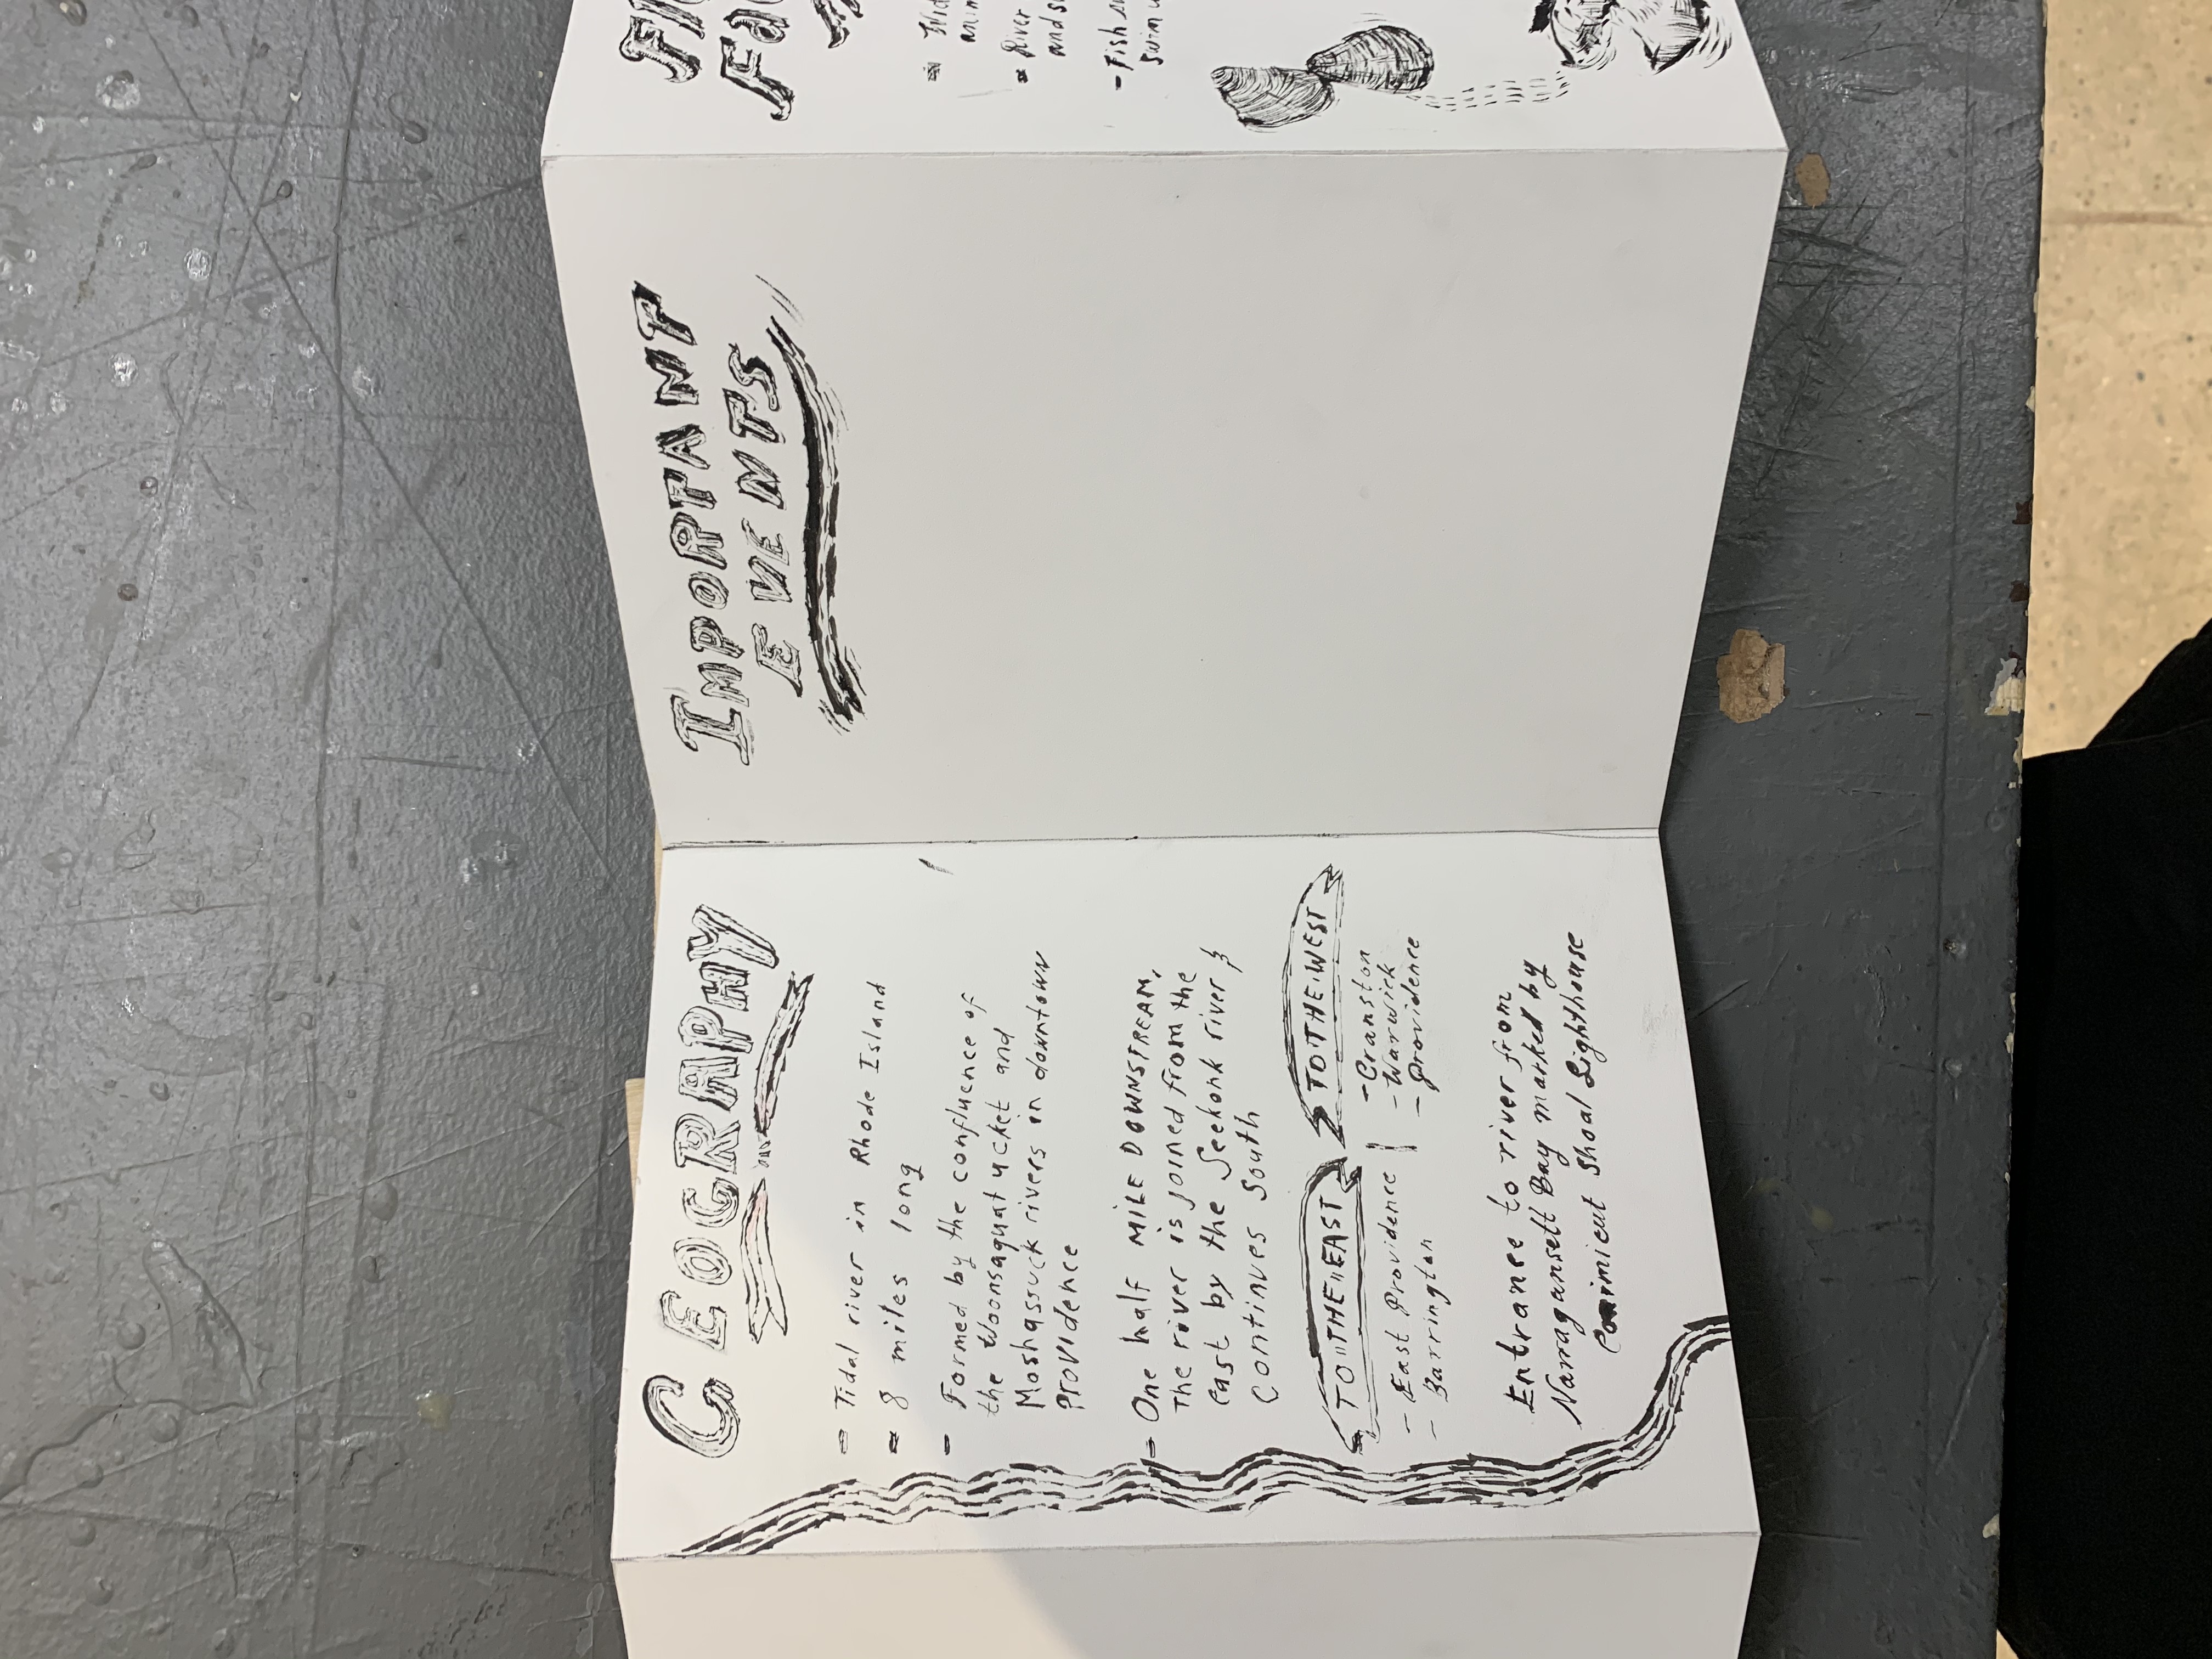 GEOGRAPHY
- Tidal river in Rhode Island
- 8 miles long
- Formed by the confluence of
the Woonsaquatucket and
Moshassuck rivers in downtown
Providence
- One half MILE DOWNSTREAM,
The river is joined from the
east by the Seekonk river &
Continues South
TO THE EAST
- East Providence
- Barrington
TO THE WEST
- Cranston
- Warwick
- Providence
Entrance to river from
Narragansett Bay marked by
Conimicut Shoal Lighthouse
IMPORTANT
EVENTS
- River
and
- Fish
Swim